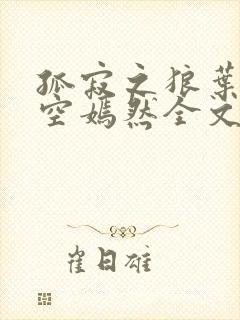 孤寂之狼叶
空嫣然全文
崔日雄